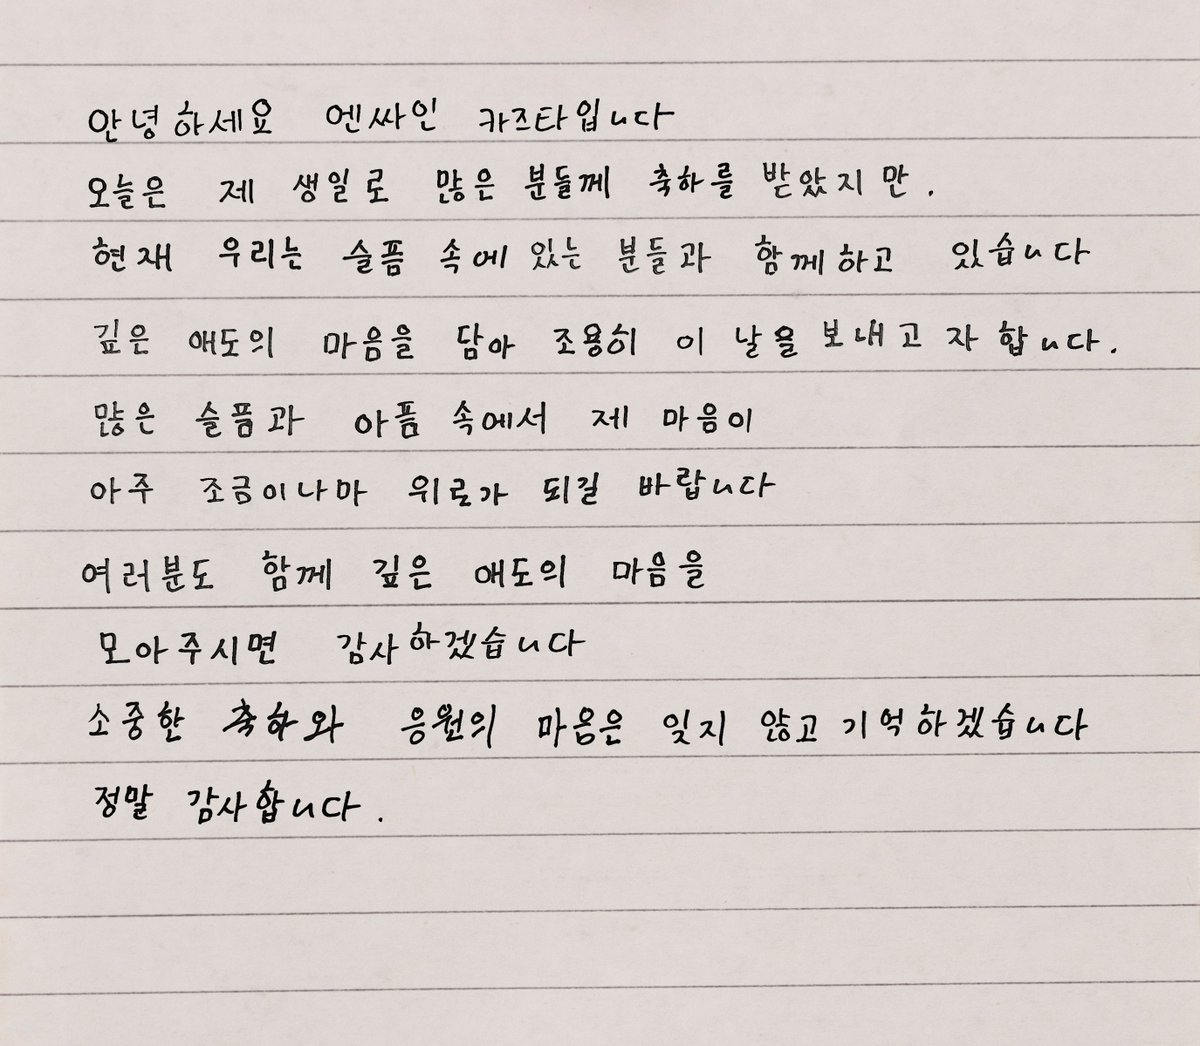 안녕하세요 엔싸인 카즈타입니다
오늘은 제 생일로 많은 분들께 축하를 받았지만.
현재 우리는 슬픔 속에 있는 분들과 함께하고 있습니다
깊은 애도의 마음을 담아 조용히 이 날을 보내고자 합니다.
많은 슬픔과 아픔 속에서 제 마음이
아주 조금이나마 위로가 되길 바랍니다
여러분도 함께 깊은 애도의 마음을
모아주시면 감사하겠습니다
소중한 축하와 응원의 마음은 잊지 않고 기억하겠습니다
정말 감사합니다.